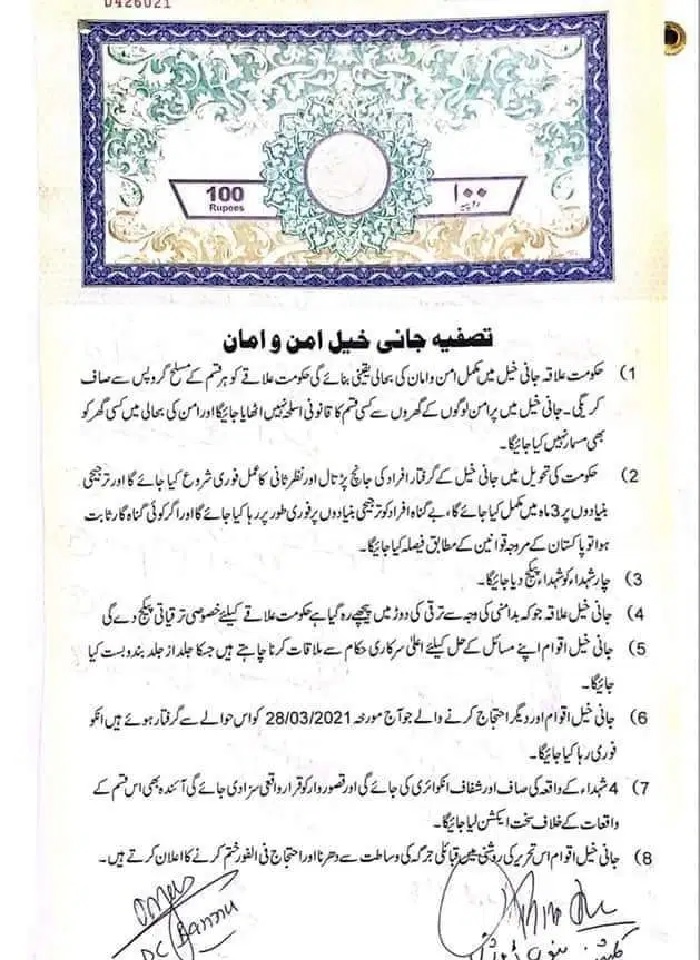 D426021
100
Rupees
۱۰۰
روپیہ
تصفیہ جانی خیل امن و امان
1) حکومت علاقہ جانی خیل میں مکمل امن و امان کی بحالی یقینی بنائے گی حکومت علاقے کو ہر قسم کے مسلح گروپس سے صاف
کریگی۔ جانی خیل میں پر امن لوگوں کے گھروں سے کسی قسم کا قانونی اسلحہ نہیں اٹھایا جائیگا اور امن کی بحالی میں کسی گھر کو
بھی مسمار نہیں کیا جائیگا۔
2) حکومت کی تحویل میں جانی خیل کے گرفتار افراد کی جانچ پڑتال اور نظر ثانی کا عمل فوری شروع کیا جائے گا اور ترجیحی
بنیادوں پر 3 ماہ میں مکمل کیا جائے گا، بے گناہ افراد کو ترجیحی بنیادوں پر فوری طور پر رہا کیا جائے گا اور اگر کوئی گناہ گار ثابت
ہوا تو پاکستان کے مروجہ قوانین کے مطابق فیصلہ کیا جائیگا۔
3) چار شہداء کو شہداء پیکج دیا جائیگا۔
4) جانی خیل علاقہ جو کہ بدامنی کی وجہ سے ترقی کی دوڑ میں پیچھے رہ گیا ہے حکومت علاقے کیلئے خصوصی ترقیاتی پیکج دے گی
5) جانی خیل اقوام اپنے مسائل کے حل کیلئے اعلیٰ سرکاری حکام سے ملاقات کرنا چاہتے ہیں جسکا جلد از جلد بندوبست کیا
جائیگا۔
6) جانی خیل اقوام اور دیگر احتجاج کرنے والے جو آج مورخہ 28/03/2021 کو اس حوالے سے گرفتار ہوئے ہیں انکو
فوری رہا کیا جائیگا۔
7) 4 شہداء کے واقعہ کی صاف اور شفاف انکوائری کی جائے گی اور قصوروار کو قرار واقعی سزا دی جائے گی آئندہ بھی اس قسم کے
واقعات کے خلاف سخت ایکشن لیا جائیگا۔
8) جانی خیل اقوام اس تحریر کی روشنی میں قبائلی جرگہ کی وساطت سے دھرنا اور احتجاج فی الفور ختم کرنے کا اعلان کرتے ہیں۔
DC Bannu
کمشنر بنوں ڈویژن